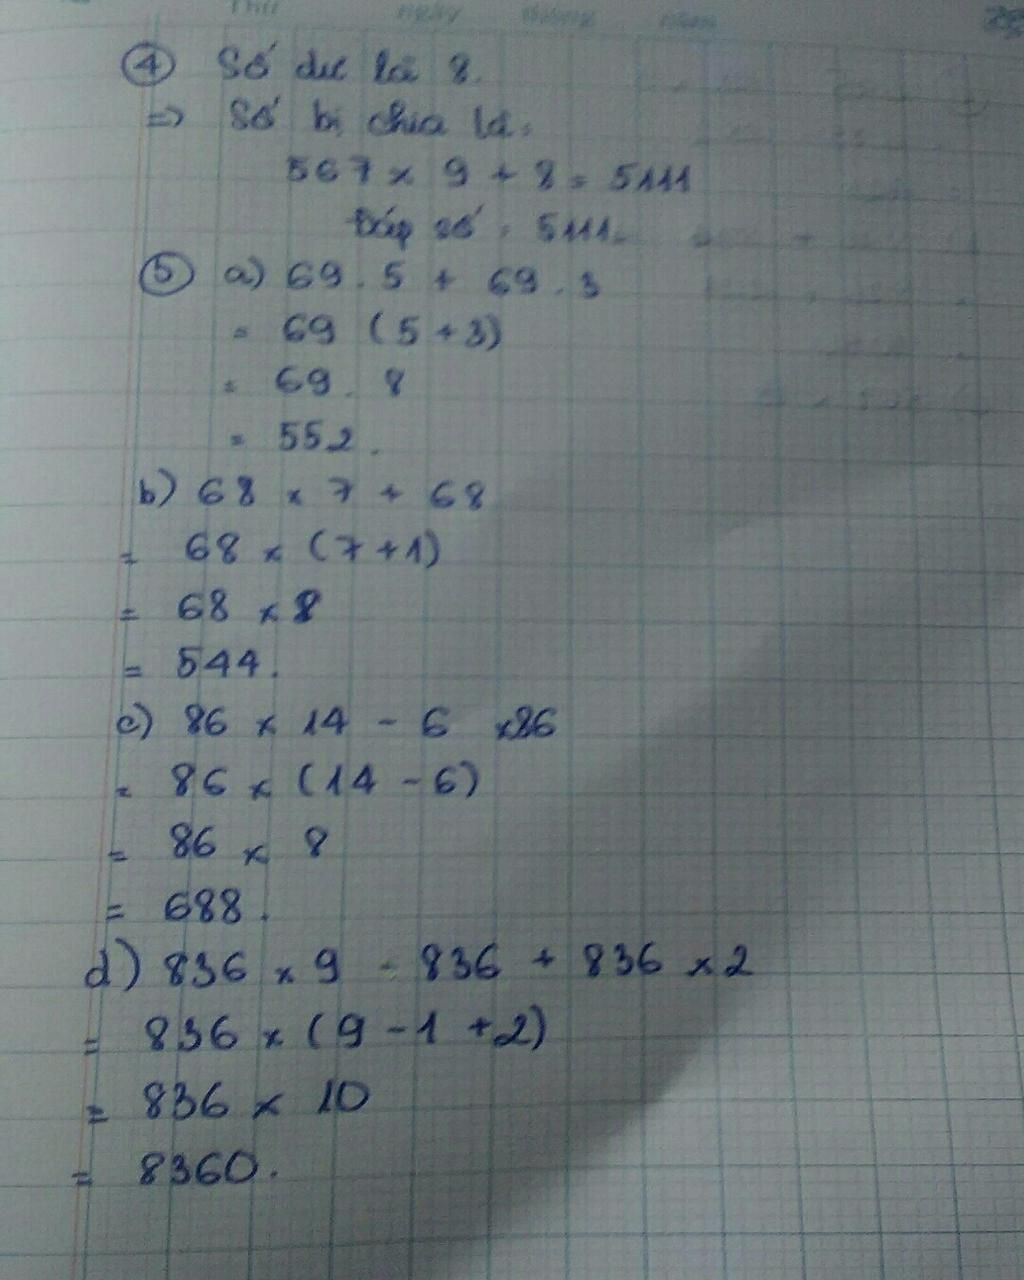 Thứ ngày tháng năm
④ Số dư là 8.
=> Số bị chia là:
567 x 9 + 8 = 5111
Đáp số : 5111.
⑤ a) 69 . 5 + 69 . 3
= 69 (5 + 3)
= 69 . 8
= 552.
b) 68 x 7 + 68
= 68 x (7 + 1)
= 68 x 8
= 544.
c) 86 x 14 - 6 x 86
= 86 x (14 - 6)
= 86 x 8
= 688.
d) 836 x 9 - 836 + 836 x 2
= 836 x (9 - 1 + 2)
= 836 x 10
= 8360.